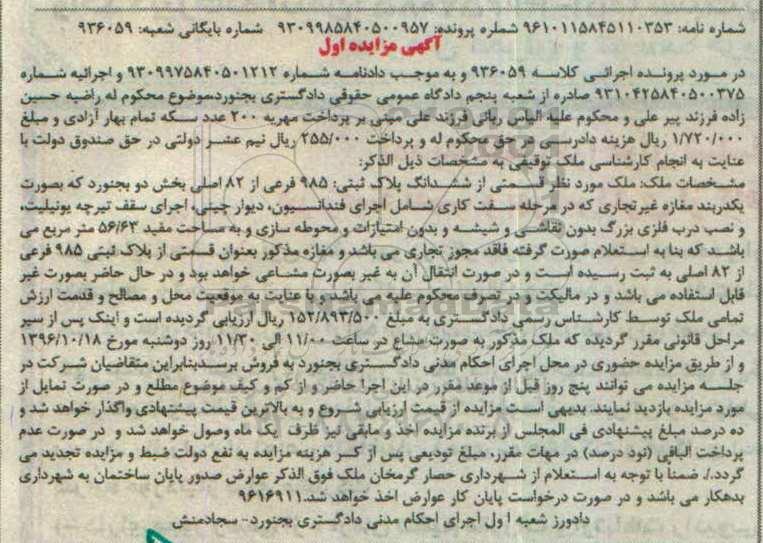 شماره نامه: ۹۶۱۰۱۱۵۸۴۵۱۱۰۳۵۳ شماره پرونده: ۹۳۰۹۹۸۵۸۴۰۵۰۰۹۵۷ شماره بایگانی شعبه: ۹۳۶۰۵۹
آگهی مزایده اول
در مورد پرونده اجرائی کلاسه ۹۳۶۰۵۹ و به موجب دادنامه شماره ۹۳۰۹۹۷۵۸۴۰۵۰۱۲۱۲ و اجرائیه شماره
۹۳۱۰۴۲۵۸۴۰۵۰۰۳۷۵ صادره از شعبه پنجم دادگاه عمومی حقوقی دادگستری بجنورد،موضوع محکوم له راضیه حسین
زاده فرزند پیر علی و محکوم علیه الیاس ربانی فرزند علی مبنی بر پرداخت مهریه ۲۰۰ عدد سکه تمام بهار آزادی و مبلغ
۱/۷۲۰/۰۰۰ ریال هزینه دادرسی در حق محکوم له و پرداخت ۲۵۵/۰۰۰ ریال نیم عشر دولتی در حق صندوق دولت با
عنایت به انجام کارشناسی ملک توقیفی به مشخصات ذیل الذکر:
مشخصات ملک: ملک مورد نظر قسمتی از ششدانگ پلاک ثبتی: ۹۸۵ فرعی از ۸۲ اصلی بخش دو بجنورد که بصورت
یکدربند مغازه غیرتجاری که در مرحله سفت کاری شامل اجرای فنداسیون، دیوار چینی، اجرای سقف تیرچه یونیلیت،
و نصب درب فلزی بزرگ بدون نقاشی و شیشه و بدون امتیازات و محوطه سازی و به مساحت مفید ۵۶/۶۳ متر مربع می
باشد که بنا به استعلام صورت گرفته فاقد مجوز تجاری می باشد و مغازه مذکور بعنوان قسمتی از پلاک ثبتی ۹۸۵ فرعی
از ۸۲ اصلی به ثبت رسیده است و در صورت انتقال آن به غیر بصورت مشاعی خواهد بود و در حال حاضر بصورت غیر
قابل استفاده می باشد و در مالکیت و در تصرف محکوم علیه می باشد و با عنایت به موقعیت محل و مصالح و قدمت ارزش
تمامی ملک توسط کارشناس رسمی دادگستری به مبلغ ۱۵۲/۸۹۳/۵۰۰ ریال ارزیابی گردیده است و اینک پس از سیر
مراحل قانونی مقرر گردیده که ملک مذکور به صورت مشاع در ساعت ۱۱/۰۰ الی ۱۱/۳۰ روز دوشنبه مورخ ۱۳۹۶/۱۰/۱۸
و از طریق مزایده حضوری در محل اجرای احکام مدنی دادگستری بجنورد به فروش برسدبنابراین متقاضیان شرکت در
جلسه مزایده می توانند پنج روز قبل از موعد مقرر در این اجرا حاضر و از کم و کیف موضوع مطلع و در صورت تمایل از
مورد مزایده بازدید نمایند. بدیهی است مزایده از قیمت ارزیابی شروع و به بالاترین قیمت پیشنهادی واگذار خواهد شد و
ده درصد مبلغ پیشنهادی فی المجلس از برنده مزایده اخذ و مابقی نیز ظرف یک ماه وصول خواهد شد و در صورت عدم
پرداخت الباقی (نود درصد) در مهات مقرر، مبلغ تودیعی پس از کسر هزینه مزایده به نفع دولت ضبط و مزایده تجدید می
گردد./. ضمنا با توجه به استعلام از شهرداری حصار گرمخان ملک فوق الذکر عوارض صدور پایان ساختمان به شهرداری
بدهکار می باشد و در صورت درخواست پایان کار عوارض اخذ خواهد شد.۹۶۱۶۹۱۱
دادورز شعبه اول اجرای احکام مدنی دادگستری بجنورد- سجادمنش